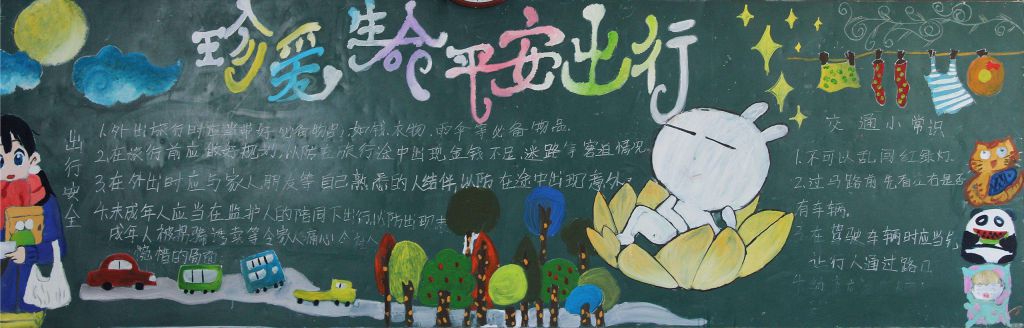 珍爱生命 平安出行
出行安全
1.外出旅行时应当带好必备物品,如钱、衣物、雨伞等必备物品.
2.在旅行前应做好规划,以防在旅行途中出现金钱不足,迷路等窘迫情况.
3.在外出时应与家人朋友等自己熟悉的人结伴,以防在途中出现意外.
4.未成年人应当在监护人的陪同下出行,以防出现未
成年人被拐骗诱卖等令家人痛心
的局面.
交通小常识
1.不可以乱闯红绿灯.
2.过马路前先看左右是否
有车辆.
3.在驾驶车辆时应当
让行人通过路口